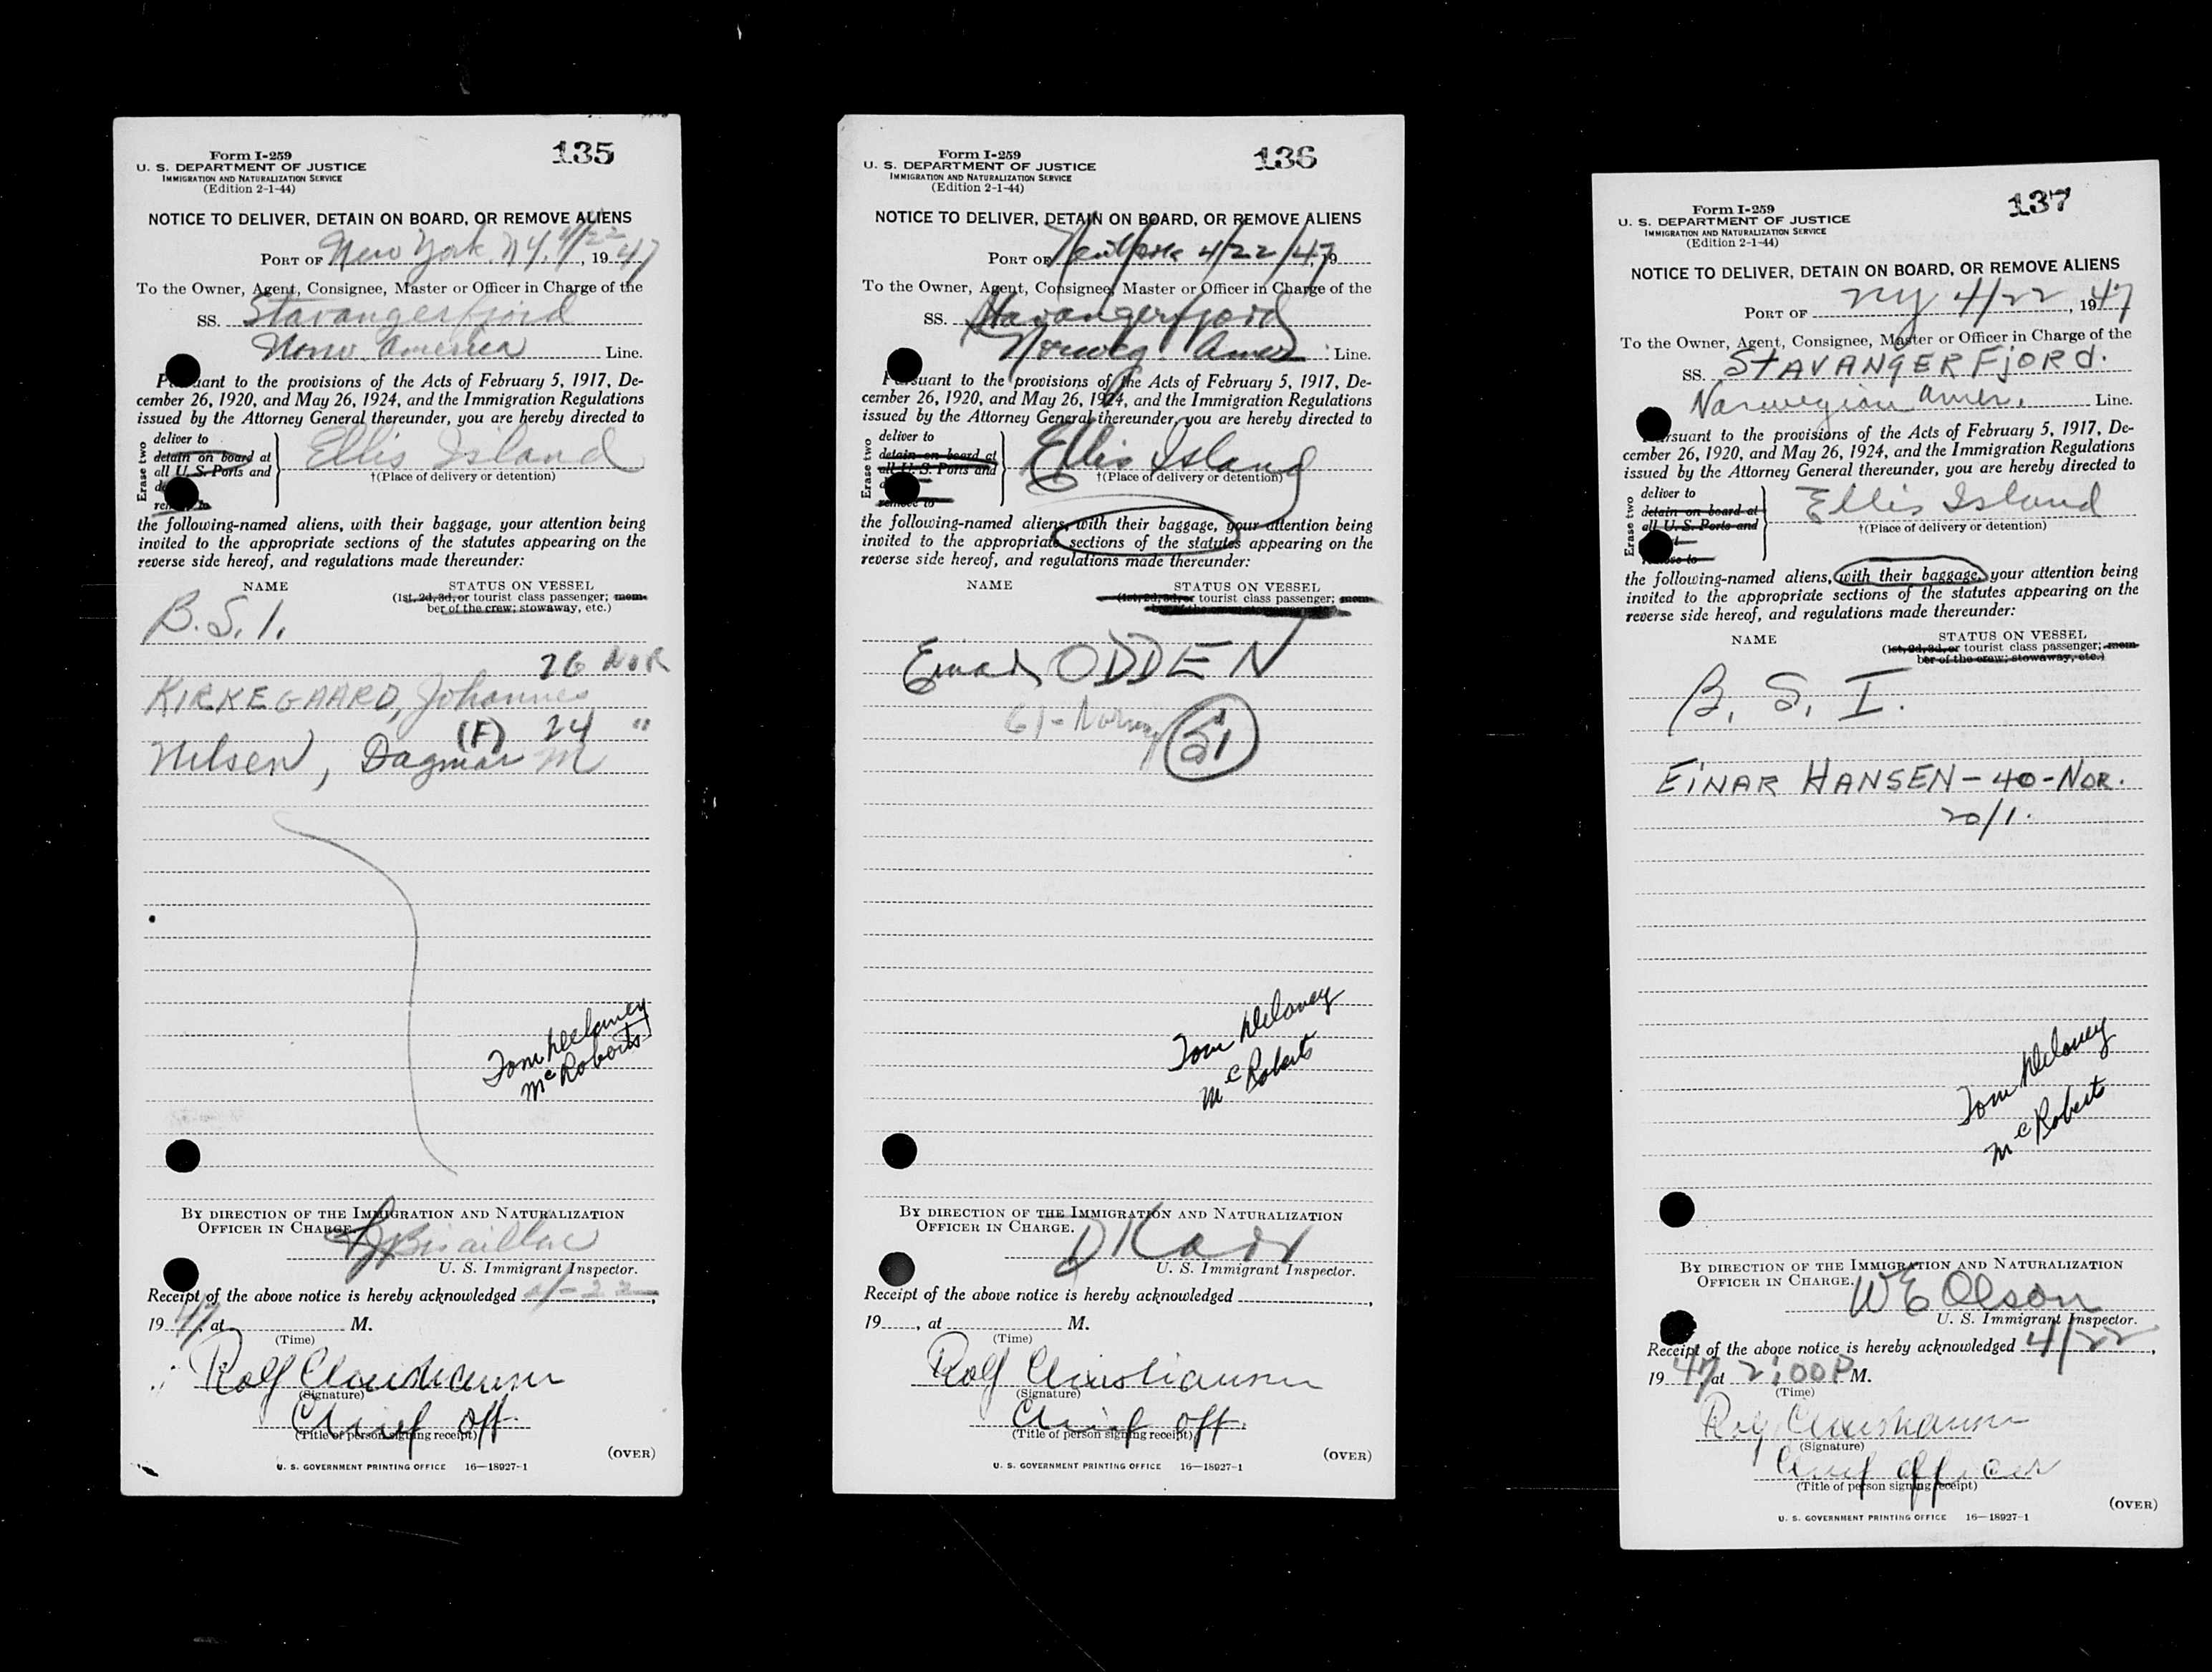 135
Form I-259
U. S. DEPARTMENT OF JUSTICE
IMMIGRATION AND NATURALIZATION SERVICE
(Edition 2-1-44)
NOTICE TO DELIVER, DETAIN ON BOARD, OR REMOVE ALIENS
PORT OF New York, N.Y. 4/22, 1947
To the Owner, Agent, Consignee, Master or Officer in Charge of the
SS. Stavangerfjord
Norw. America Line.
Pursuant to the provisions of the Acts of February 5, 1917, De-
cember 26, 1920, and May 26, 1924, and the Immigration Regulations
issued by the Attorney General thereunder, you are hereby directed to
Erase two
deliver to
detain on board at
all U. S. Ports and
Ellis Island
†(Place of delivery or detention)
the following-named aliens, with their baggage, your attention being
invited to the appropriate sections of the statutes appearing on the
reverse side hereof, and regulations made thereunder:
NAME STATUS ON VESSEL
(1st, 2d, 3d, or tourist class passenger; mem-
ber of the crew; stowaway, etc.)
B.S.I.
26 NOR
KIRKEGAARD, Johannes
(F) 24 "
Nilsen, Dagmar M
Tom Delaney
McRoberts
BY DIRECTION OF THE IMMIGRATION AND NATURALIZATION
OFFICER IN CHARGE.
U. S. Immigrant Inspector.
Receipt of the above notice is hereby acknowledged 4-22,
1947, at M.
(Time)
Rolf Christiansen
(Signature)
Chief Off.
(Title of person signing receipt)
(OVER)
U. S. GOVERNMENT PRINTING OFFICE 16—18927-1
136
Form I-259
U. S. DEPARTMENT OF JUSTICE
IMMIGRATION AND NATURALIZATION SERVICE
(Edition 2-1-44)
NOTICE TO DELIVER, DETAIN ON BOARD, OR REMOVE ALIENS
PORT OF New York 4/22/47, 19
To the Owner, Agent, Consignee, Master or Officer in Charge of the
SS. Stavangerfjord
Norweg. Amer Line.
Pursuant to the provisions of the Acts of February 5, 1917, De-
cember 26, 1920, and May 26, 1924, and the Immigration Regulations
issued by the Attorney General thereunder, you are hereby directed to
Erase two
deliver to
detain on board at
all U. S. Ports and
remove to
Ellis Island
†(Place of delivery or detention)
the following-named aliens, with their baggage, your attention being
invited to the appropriate sections of the statutes appearing on the
reverse side hereof, and regulations made thereunder:
NAME STATUS ON VESSEL
(1st, 2d, 3d, or tourist class passenger; mem-
Einar ODDEN
61-Norway
Tom Delaney
McRoberts
BY DIRECTION OF THE IMMIGRATION AND NATURALIZATION
OFFICER IN CHARGE.
U. S. Immigrant Inspector.
Receipt of the above notice is hereby acknowledged
19, at M.
(Time)
Rolf Christiansen
(Signature)
Chief Off.
(Title of person signing receipt)
(OVER)
U. S. GOVERNMENT PRINTING OFFICE 16—18927-1
137
Form I-259
U. S. DEPARTMENT OF JUSTICE
IMMIGRATION AND NATURALIZATION SERVICE
(Edition 2-1-44)
NOTICE TO DELIVER, DETAIN ON BOARD, OR REMOVE ALIENS
PORT OF NY 4/22, 1947
To the Owner, Agent, Consignee, Master or Officer in Charge of the
SS. STAVANGERFJORD.
Norwegian Amer. Line.
Pursuant to the provisions of the Acts of February 5, 1917, De-
cember 26, 1920, and May 26, 1924, and the Immigration Regulations
issued by the Attorney General thereunder, you are hereby directed to
Erase two
deliver to
detain on board at
all U. S. Ports and
Ellis Island
†(Place of delivery or detention)
the following-named aliens, with their baggage, your attention being
invited to the appropriate sections of the statutes appearing on the
reverse side hereof, and regulations made thereunder:
NAME STATUS ON VESSEL
(1st, 2d, 3d, or tourist class passenger; mem-
ber of the crew; stowaway, etc.)
B. S. I.
EINAR HANSEN - 40 - NOR.
20/1.
Tom Delaney
McRoberts
BY DIRECTION OF THE IMMIGRATION AND NATURALIZATION
OFFICER IN CHARGE.
W E Olson
U. S. Immigrant Inspector.
Receipt of the above notice is hereby acknowledged 4/22,
1947, at 2:00 P M.
(Time)
Rolf Christiansen
(Signature)
Chief Officer
(Title of person signing receipt)
(OVER)
U. S. GOVERNMENT PRINTING OFFICE 16—18927-1